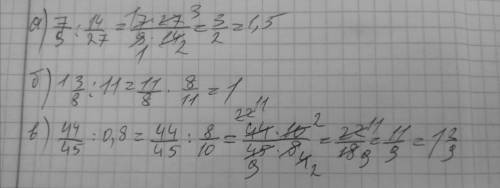 а) 7/9 : 14/27 = 17·27 3/9·14 1 2 = 3/2 = 1,5
б) 1 3/8 : 11 = 11/8 · 8/11 = 1
в) 44/45 : 0,8 = 44/45 : 8/10 = 22 11 44·10 2/45·8 9 4 2 = 22 11/18 9 = 11/9 = 1 2/9